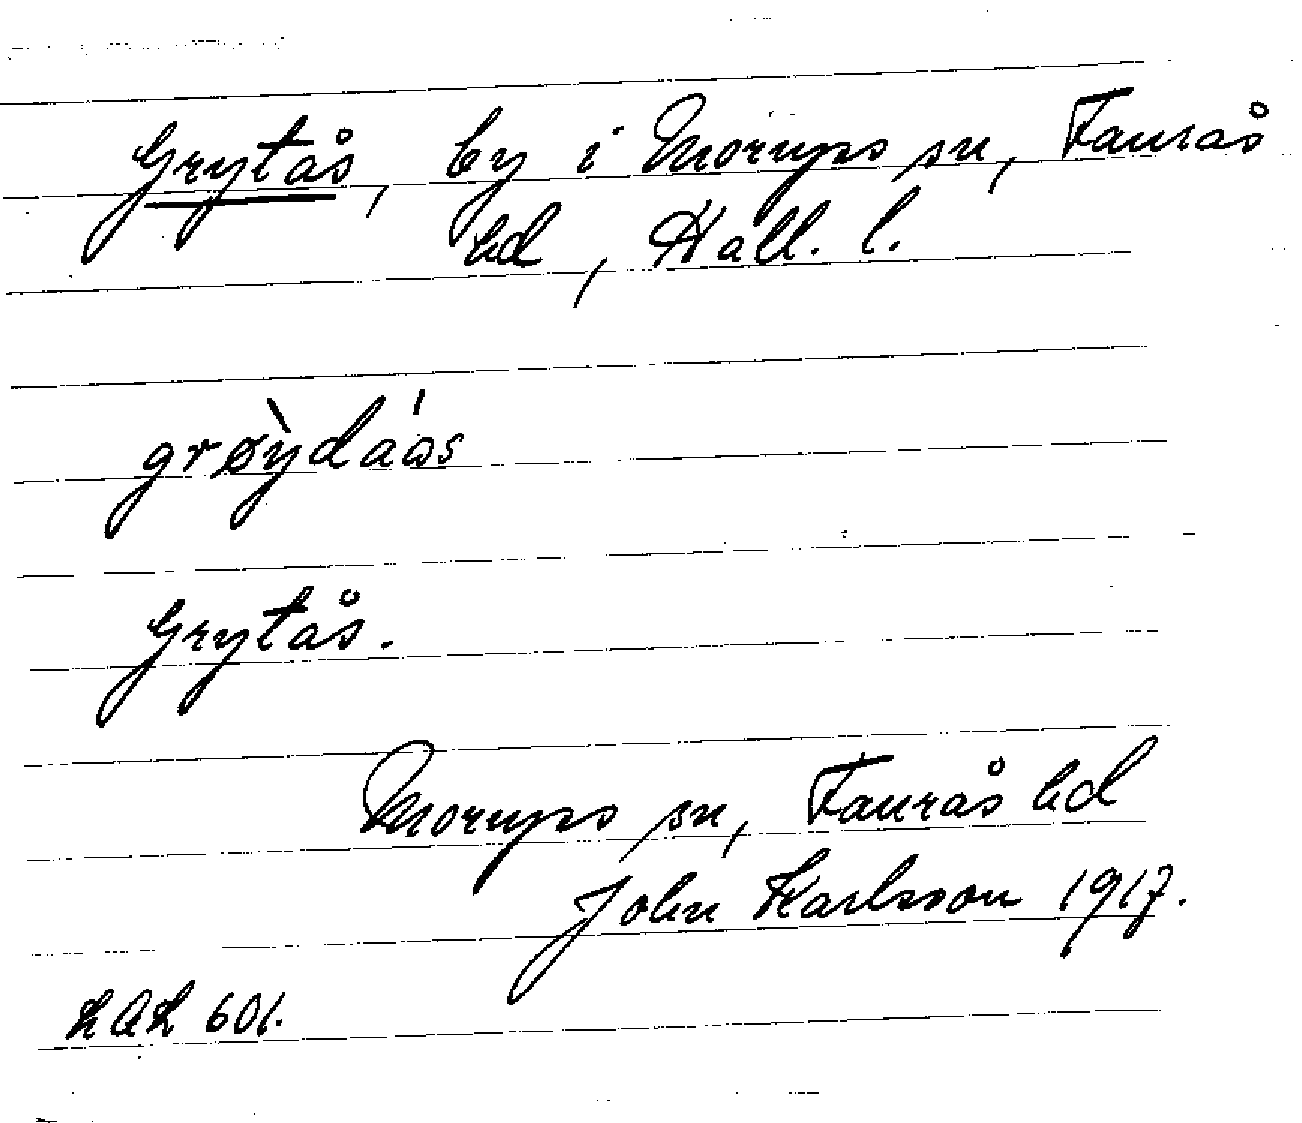 Grytås, by i Morups sn, Faurås
hd, Hall. l.
grøỳdáas
Grytås.
Morups sn, Faurås hd
John Karlsson 1917.
LAL 601.